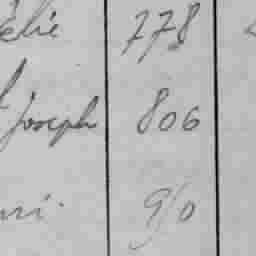 élie 778
Joseph 806
ri. 910